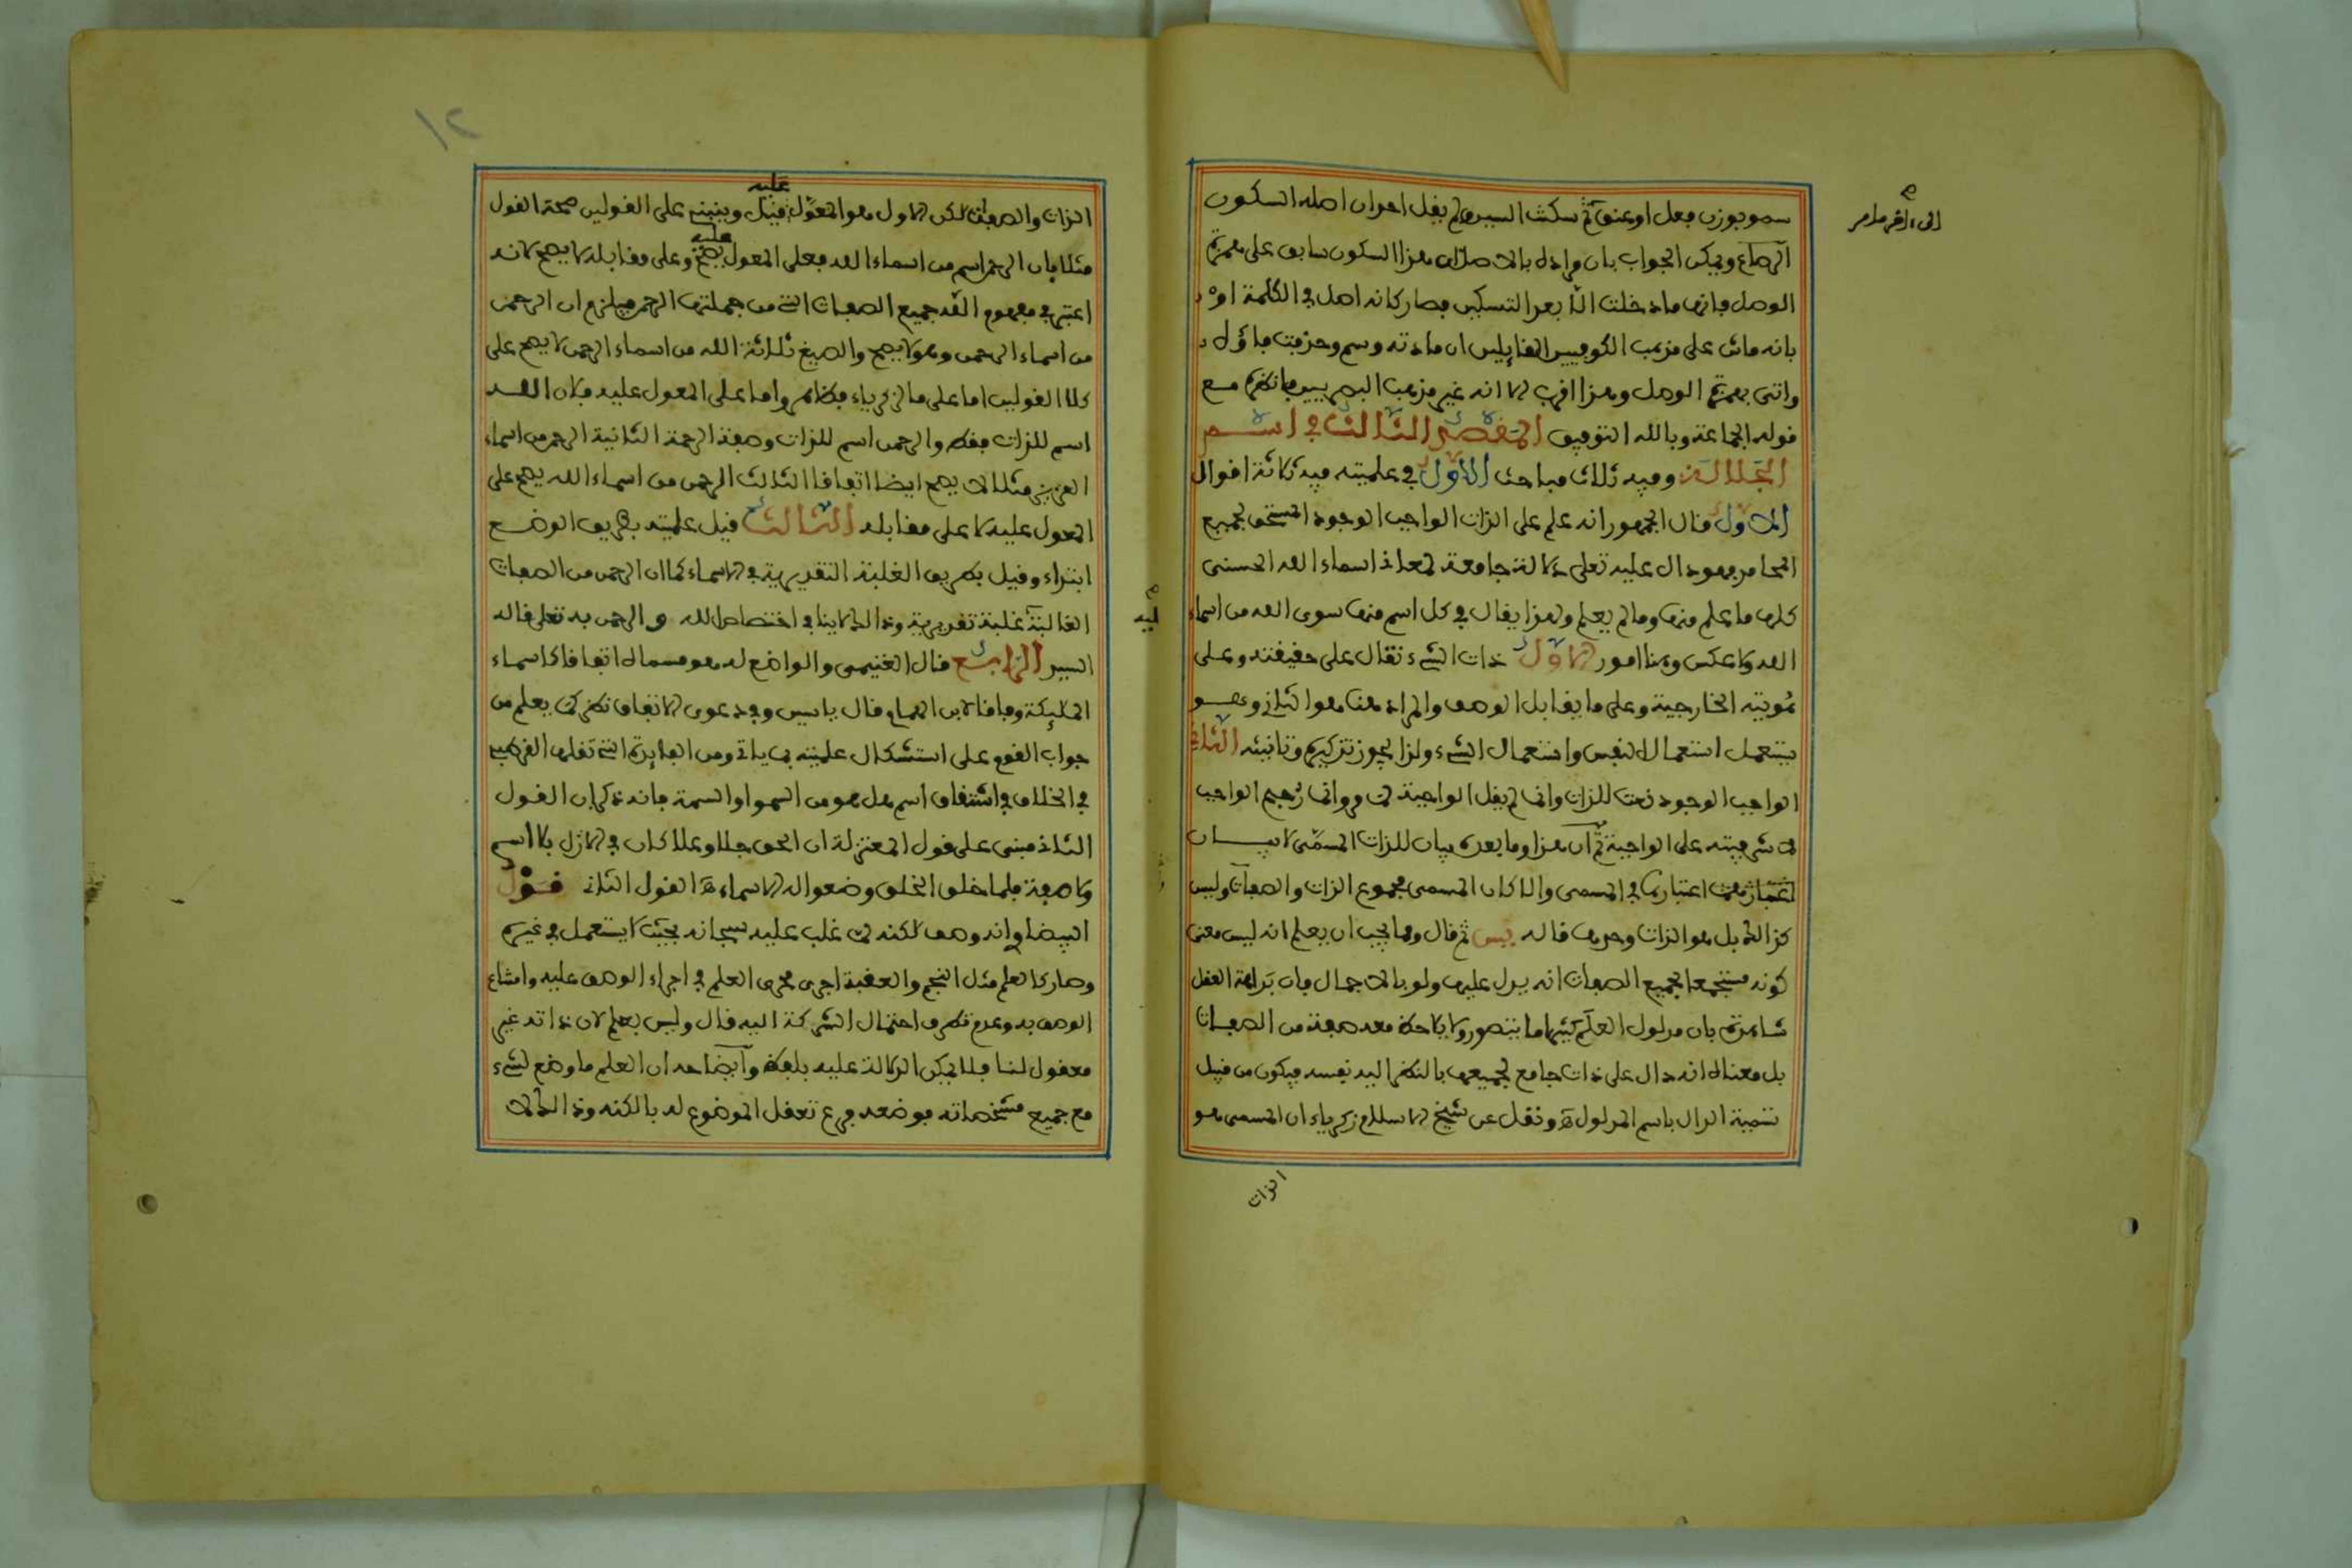 سمو بوزن فعل او عنق ثم سكنت السين لم يقل احد ان اصله السكون
ويمكن الجواب بان مراده بالاصل ان هذا السكون سابق على همزة
الوصل فانها ما دخلت الا بعد التسكين فصار كانه اصل في الكلمة او
بانه ماش على مذهب الكوفيين القائلين ان مادته وسم وحذفت فاؤه
واتى بهمزة الوصل وهذا اقرب الا انه غير مذهب البصريين فانظره مع
قوله الجماعة وبالله التوفيق المقصد الثالث في اسم
الجلالة وفيه ثلاث مباحث الأول في علميته فيه ثلاثة اقوال
الاول قال الجمهور انه علم على الذات الواجب الوجود المستحق لجميع
المحامد فهو دال عليه تعلى دلالة جامعة لمعاني اسماء الله الحسنى
كلها ما علم منها وما لم يعلم ولهذا يقال في كل اسم منها سوى الله من اسماء
الله ولا عكس وهنا امور الاول ذات الشيء تقال على حقيقته وعلى
هويته الخارجية وعلى ما يقابل الوصف والمراد هنا هو الثاني وهو
يستعمل استعمال النفس واستعمال الشيء ولذا يجوز تذكيره وتانيثه الثاني
الواجب الوجود نعت للذات وانما لم يقل الواجبة
على الواجبة ثم ان هذا وما بعده بيان للذات المسمى لا بيان
اعتبارهما في المسمى والا كان المسمى مجموع الذات والصفات وليس
كذالك بل هو الذات وحدها قاله يس ثم قال ومما يجب ان يعلم انه ليس معنى
كونه مستجمعا لجميع الصفات انه يدل عليها ولو بالاجمال فان بداهة العقل
شاهدة بان مدلول العلم كثيرا ما يتصور ولا يلاحظ معه صفة من الصفات
بل معناه انه دال على ذات جامع لجميعها بالنظر اليه نفسه فيكون من قبيل
تسمية الدال باسم المدلول اه ونقل عن شيخ الاسلام زكرياء ان المسمى هو
الذات
الذات والصفات لكن الاول هو المعول عليه قيل وينبني على القولين صحة القول
مثلا بان الرحمن اسم من اسماء الله فعلى المعول عليه يصح وعلى مقابله لا يصح لانه
اعتبر في مفهوم الله جميع الصفات التي من جملتها الرحمن فيلزم ان الرحمن
من اسماء الرحمن وهو لا يصح والصيغ ثلاثة الله من اسماء الرحمن لا يصح على
كلا القولين اما على ما لزكرياء فظاهر واما على المعول عليه فلان الله
اسم للذات فقط والرحمن اسم للذات وصفة الرحمة الثانية الرحمن من اسماء
العزيز مثلا لا يصح ايضا اتفاقا الثالث الرحمن من اسماء الله يصح على
المعول عليه لا على مقابله الثالث قيل علميته بطريق الوضع
ابتداء وقيل بطريق الغلبة التقديرية في الاسماء كما ان الرحمن من الصفات
الغالبة غلبة تقديرية وذالك لا ينافي اختصاص الله والرحمن به تعلى قاله
السيد الرابع قال الغنيمي والواضع له هو مسماه اتفاقا كاسماء
المليكة وفاقا لابن الهمام قال ياسين وفي دعوى الاتفاق نظر كما يعلم من
جواب القوم على استشكال علميته بما ياتي ومن الفايدة التي نقلها القرطبي
في الخلاف في اشتقاق اسم هل هو من السمو او السمة فانه ذكر ان القول
الثاني مبني على قول المعتزلة ان الحق جلا وعلا كان في الازل بلا اسم
ولا صفة فلما خلق الخلق وضعوا له الاسماء اه القول الثاني قول
البيضاوي انه وصف لكنه لما غلب عليه سبحانه بحيث لا يستعمل في غيره
وصار كالعلم مثل النجم والعقبة اجري مجرى العلم في اجراء الوصف عليه وامتناع
الوصف به وعدم تطرق احتمال الشركة اليه قال وليس بعلم لان ذاته غير
معقول لنا فلا يمكن الدلالة عليه بلفظ وايضا حد ان العلم ما وضع لشيء
مع جميع مشخصاته فوضعه فرع تعقل الموضوع له بالكنه وذالك لا
١٢